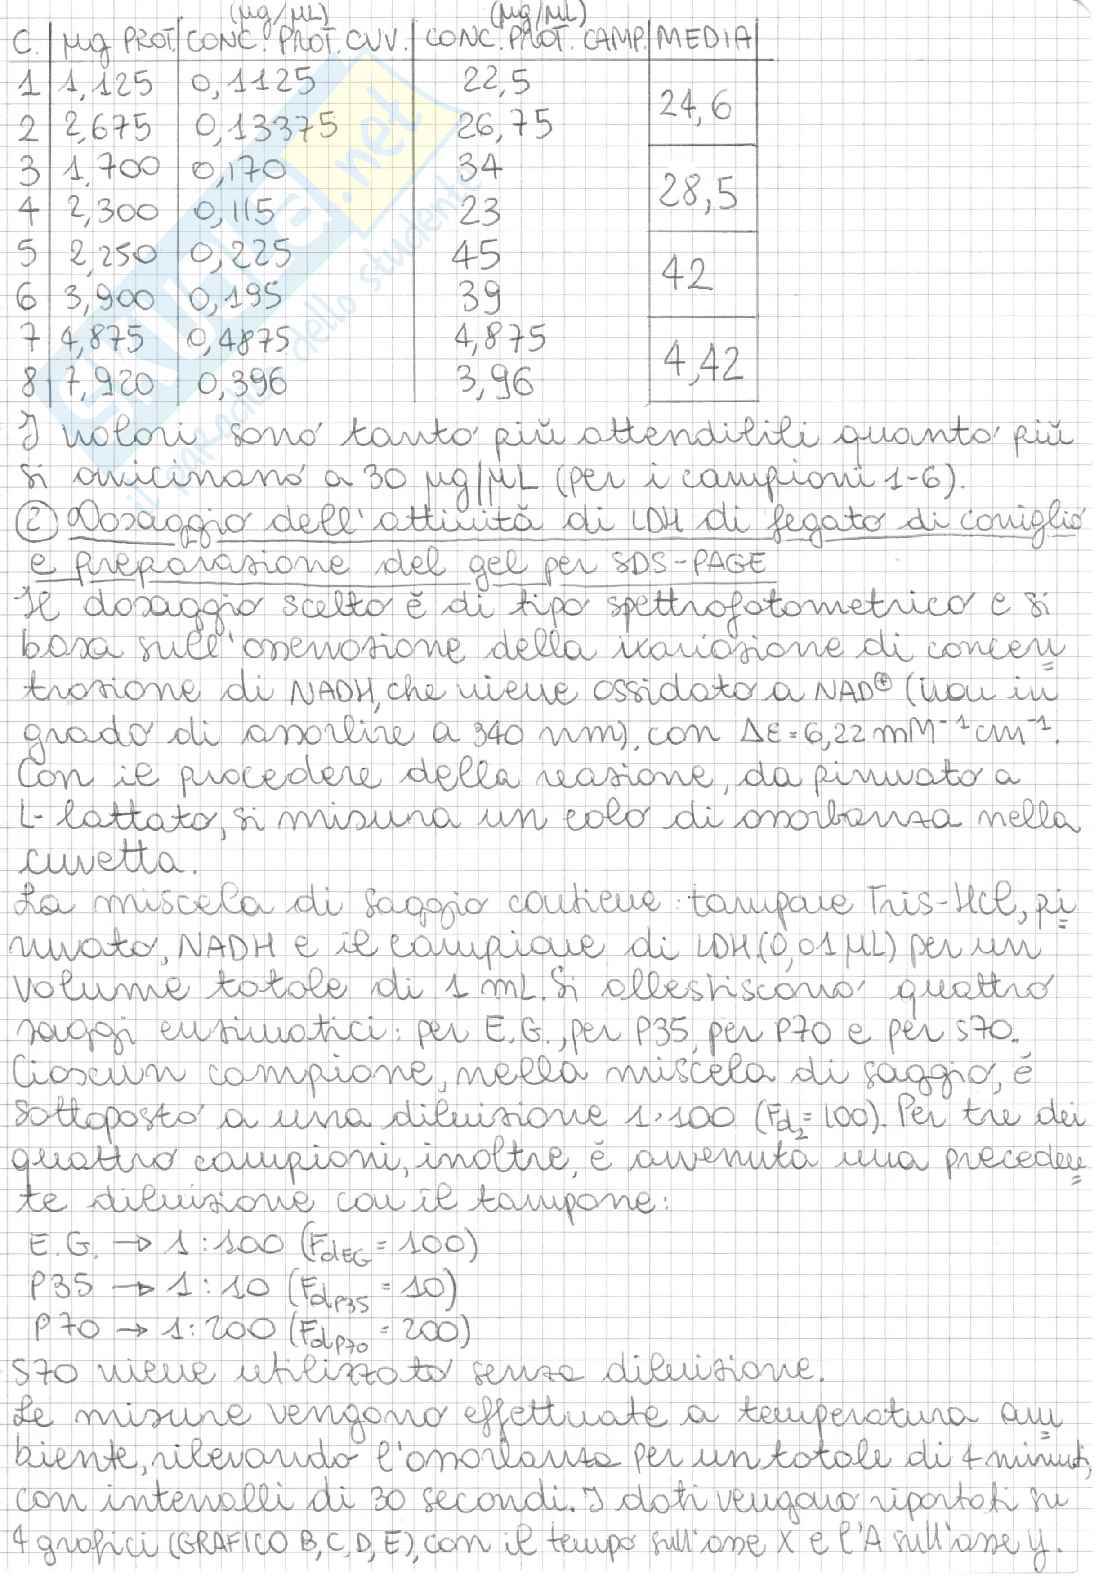 (µg/µL) (µg/µL)
C. µg PROT. CONC. PROT. CUV. CONC. PROT. CAMP. MEDIA
1 1,125 0,1125 22,5
24,6
2 2,675 0,13375 26,75
3 1,700 0,170 34
28,5
4 2,300 0,115 23
5 2,250 0,225 45
42
6 3,900 0,195 39
7 4,875 0,4875 4,875
4,42
8 7,920 0,396 3,96
I valori sono tanto più attendibili quanto più
si avvicinano a 30 µg/µL (per i campioni 1-6).
② Dosaggio dell'attività di LDH di fegato di coniglio
e preparazione del gel per SDS-PAGE
Il dosaggio scelto è di tipo spettrofotometrico e si
basa sull'osservazione della variazione di concen
trazione di NADH, che viene ossidato a NAD⊕ (non in
grado di assorbire a 340 nm), con Δε=6,22 mM⁻¹cm⁻¹.
Con il procedere della reazione, da piruvato a
L-lattato, si misura un calo di assorbanza nella
cuvetta.
La miscela di saggio contiene: tampone Tris-HCl, pi
ruvato, NADH e il campione di LDH (0,01 µL) per un
volume totale di 1 mL. Si allestiscono quattro
saggi enzimatici: per E.G., per P35, per P70 e per S70.
Ciascun campione, nella miscela di saggio, è
sottoposto a una diluizione 1:100 (Fd₂=100). Per tre dei
quattro campioni, inoltre, è avvenuta una preceden
te diluizione con il tampone:
E.G. → 1:100 (FdEG = 100)
P35 → 1:10 (FdP35 = 10)
P70 → 1:200 (FdP70 = 200)
S70 viene utilizzato senza diluizione.
Le misure vengono effettuate a temperatura am
biente, rilevando l'assorbanza per un totale di 4 minuti,
con intervalli di 30 secondi. I dati vengono riportati su
4 grafici (GRAFICO B, C, D, E), con il tempo sull'asse X e l'A sull'asse y.
SKUOLA.net
il portale dello studente